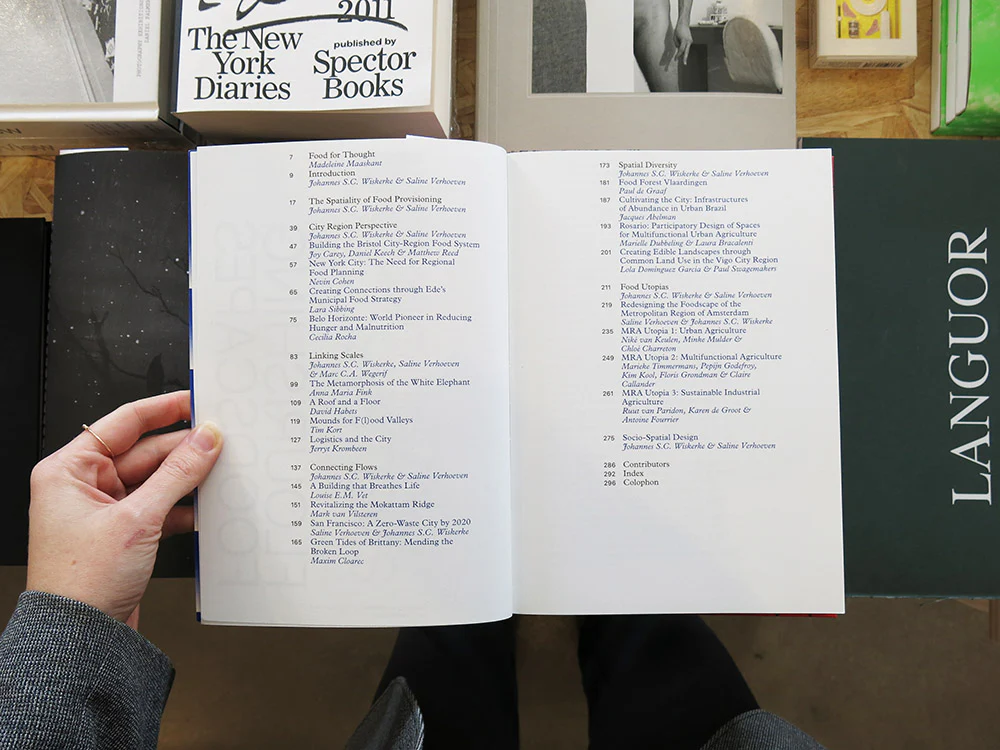 2011
The New
York
Diaries
published by
Spector
Books
7 Food for Thought
Madeleine Maaskant
9 Introduction
Johannes S.C. Wiskerke & Saline Verhoeven
17 The Spatiality of Food Provisioning
Johannes S.C. Wiskerke & Saline Verhoeven
39 City Region Perspective
Johannes S.C. Wiskerke & Saline Verhoeven
47 Building the Bristol City-Region Food System
Joy Carey, Daniel Keech & Matthew Reed
57 New York City: The Need for Regional
Food Planning
Nevin Cohen
65 Creating Connections through Ede's
Municipal Food Strategy
Lara Sibbing
75 Belo Horizonte: World Pioneer in Reducing
Hunger and Malnutrition
Cecilia Rocha
83 Linking Scales
Johannes S.C. Wiskerke, Saline Verhoeven
& Marc C.A. Wegerif
99 The Metamorphosis of the White Elephant
Anna Maria Fink
109 A Roof and a Floor
David Habets
119 Mounds for F(l)ood Valleys
Tim Kort
127 Logistics and the City
Jerryt Krombeen
137 Connecting Flows
Johannes S.C. Wiskerke & Saline Verhoeven
145 A Building that Breathes Life
Louise E.M. Vet
151 Revitalizing the Mokattam Ridge
Mark van Vilsteren
159 San Francisco: A Zero-Waste City by 2020
Saline Verhoeven & Johannes S.C. Wiskerke
165 Green Tides of Brittany: Mending the
Broken Loop
Maxim Cloarec
173 Spatial Diversity
Johannes S.C. Wiskerke & Saline Verhoeven
181 Food Forest Vlaardingen
Paul de Graaf
187 Cultivating the City: Infrastructures
of Abundance in Urban Brazil
Jacques Abelman
193 Rosario: Participatory Design of Spaces
for Multifunctional Urban Agriculture
Marielle Dubbeling & Laura Bracalenti
201 Creating Edible Landscapes through
Common Land Use in the Vigo City Region
Lola Domínguez García & Paul Swagemakers
211 Food Utopias
Johannes S.C. Wiskerke & Saline Verhoeven
219 Redesigning the Foodscape of the
Metropolitan Region of Amsterdam
Saline Verhoeven & Johannes S.C. Wiskerke
235 MRA Utopia 1: Urban Agriculture
Niké van Keulen, Minke Mulder &
Chloé Charreton
249 MRA Utopia 2: Multifunctional Agriculture
Marieke Timmermans, Pepijn Godefroy,
Kim Kool, Floris Grondman & Claire
Callander
261 MRA Utopia 3: Sustainable Industrial
Agriculture
Ruut van Paridon, Karen de Groot &
Antoine Fourrier
275 Socio-Spatial Design
Johannes S.C. Wiskerke & Saline Verhoeven
286 Contributors
292 Index
296 Colophon
LANGUOR